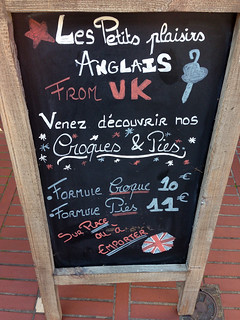 Les Petits plaisirs
ANGLAIS
FROM UK
Venez découvrir nos
Croques & Pies
• Formule Croque 10€
• Formule Pies 11€
SUR PLACE
OU À
EMPORTER